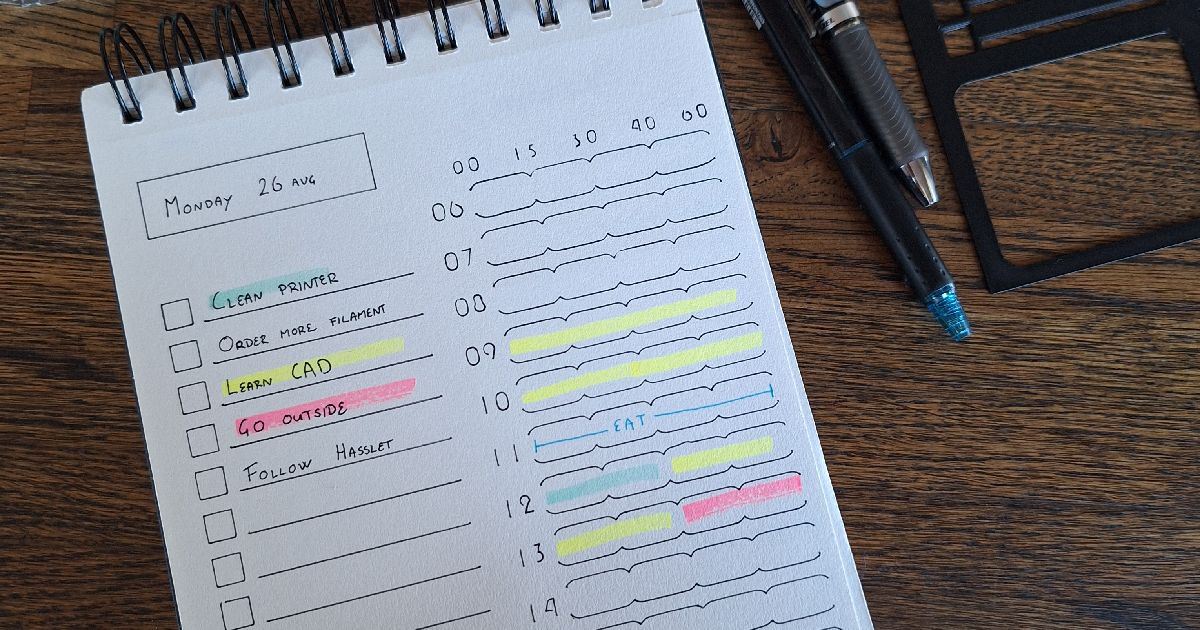 MONDAY 26 AUG
CLEAN PRINTER
ORDER MORE FILAMENT
LEARN CAD
GO OUTSIDE
FOLLOW HASSLET
00 15 30 40 60
06
07
08
09
10
11 EAT
12
13
14